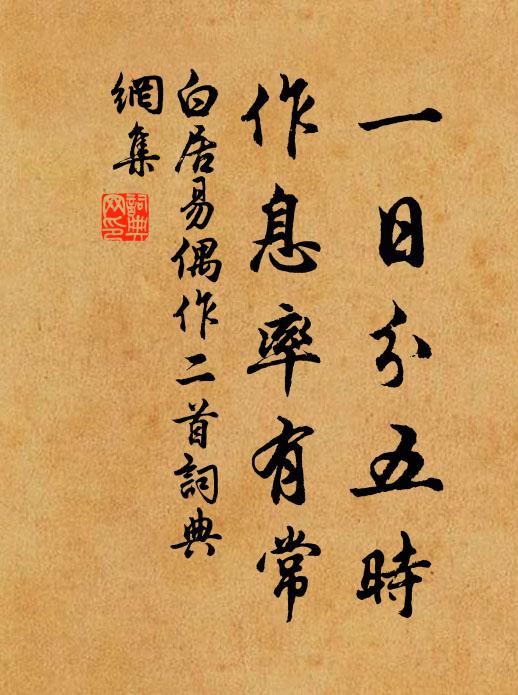 一日分五時
作息率有常
白居易偶作二首詞典
網集
詞典
网印